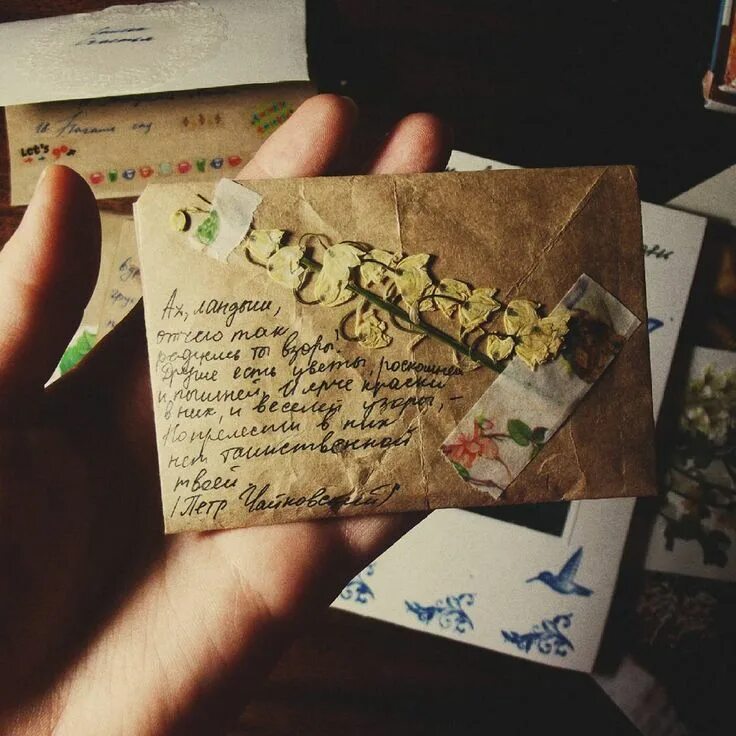 Let's go
Ах, ландыши,
отчего так
радуешь ты взоры?
Другие есть цветы, роскошней
и пышней, И ярче краски
в них, и веселей узоры, –
Но прелести в них
нет таинственной
твоей.
(Петр Чайковский)